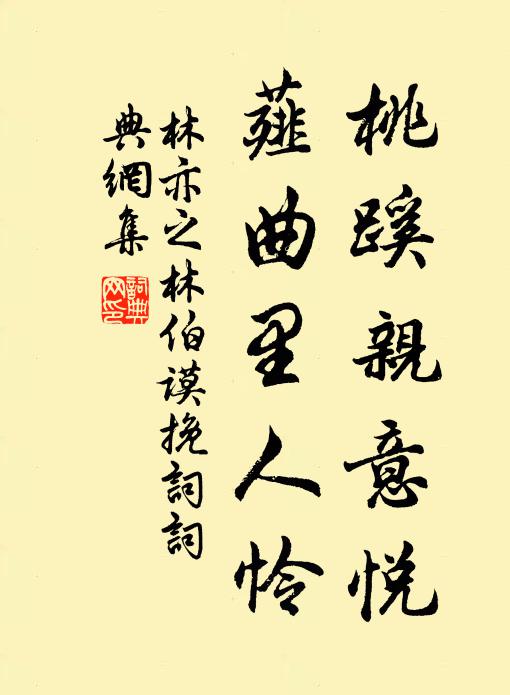 桃蹊親意悅
薤曲里人怜
林亦之林伯謨挽詞詞
典網集
詞典网印